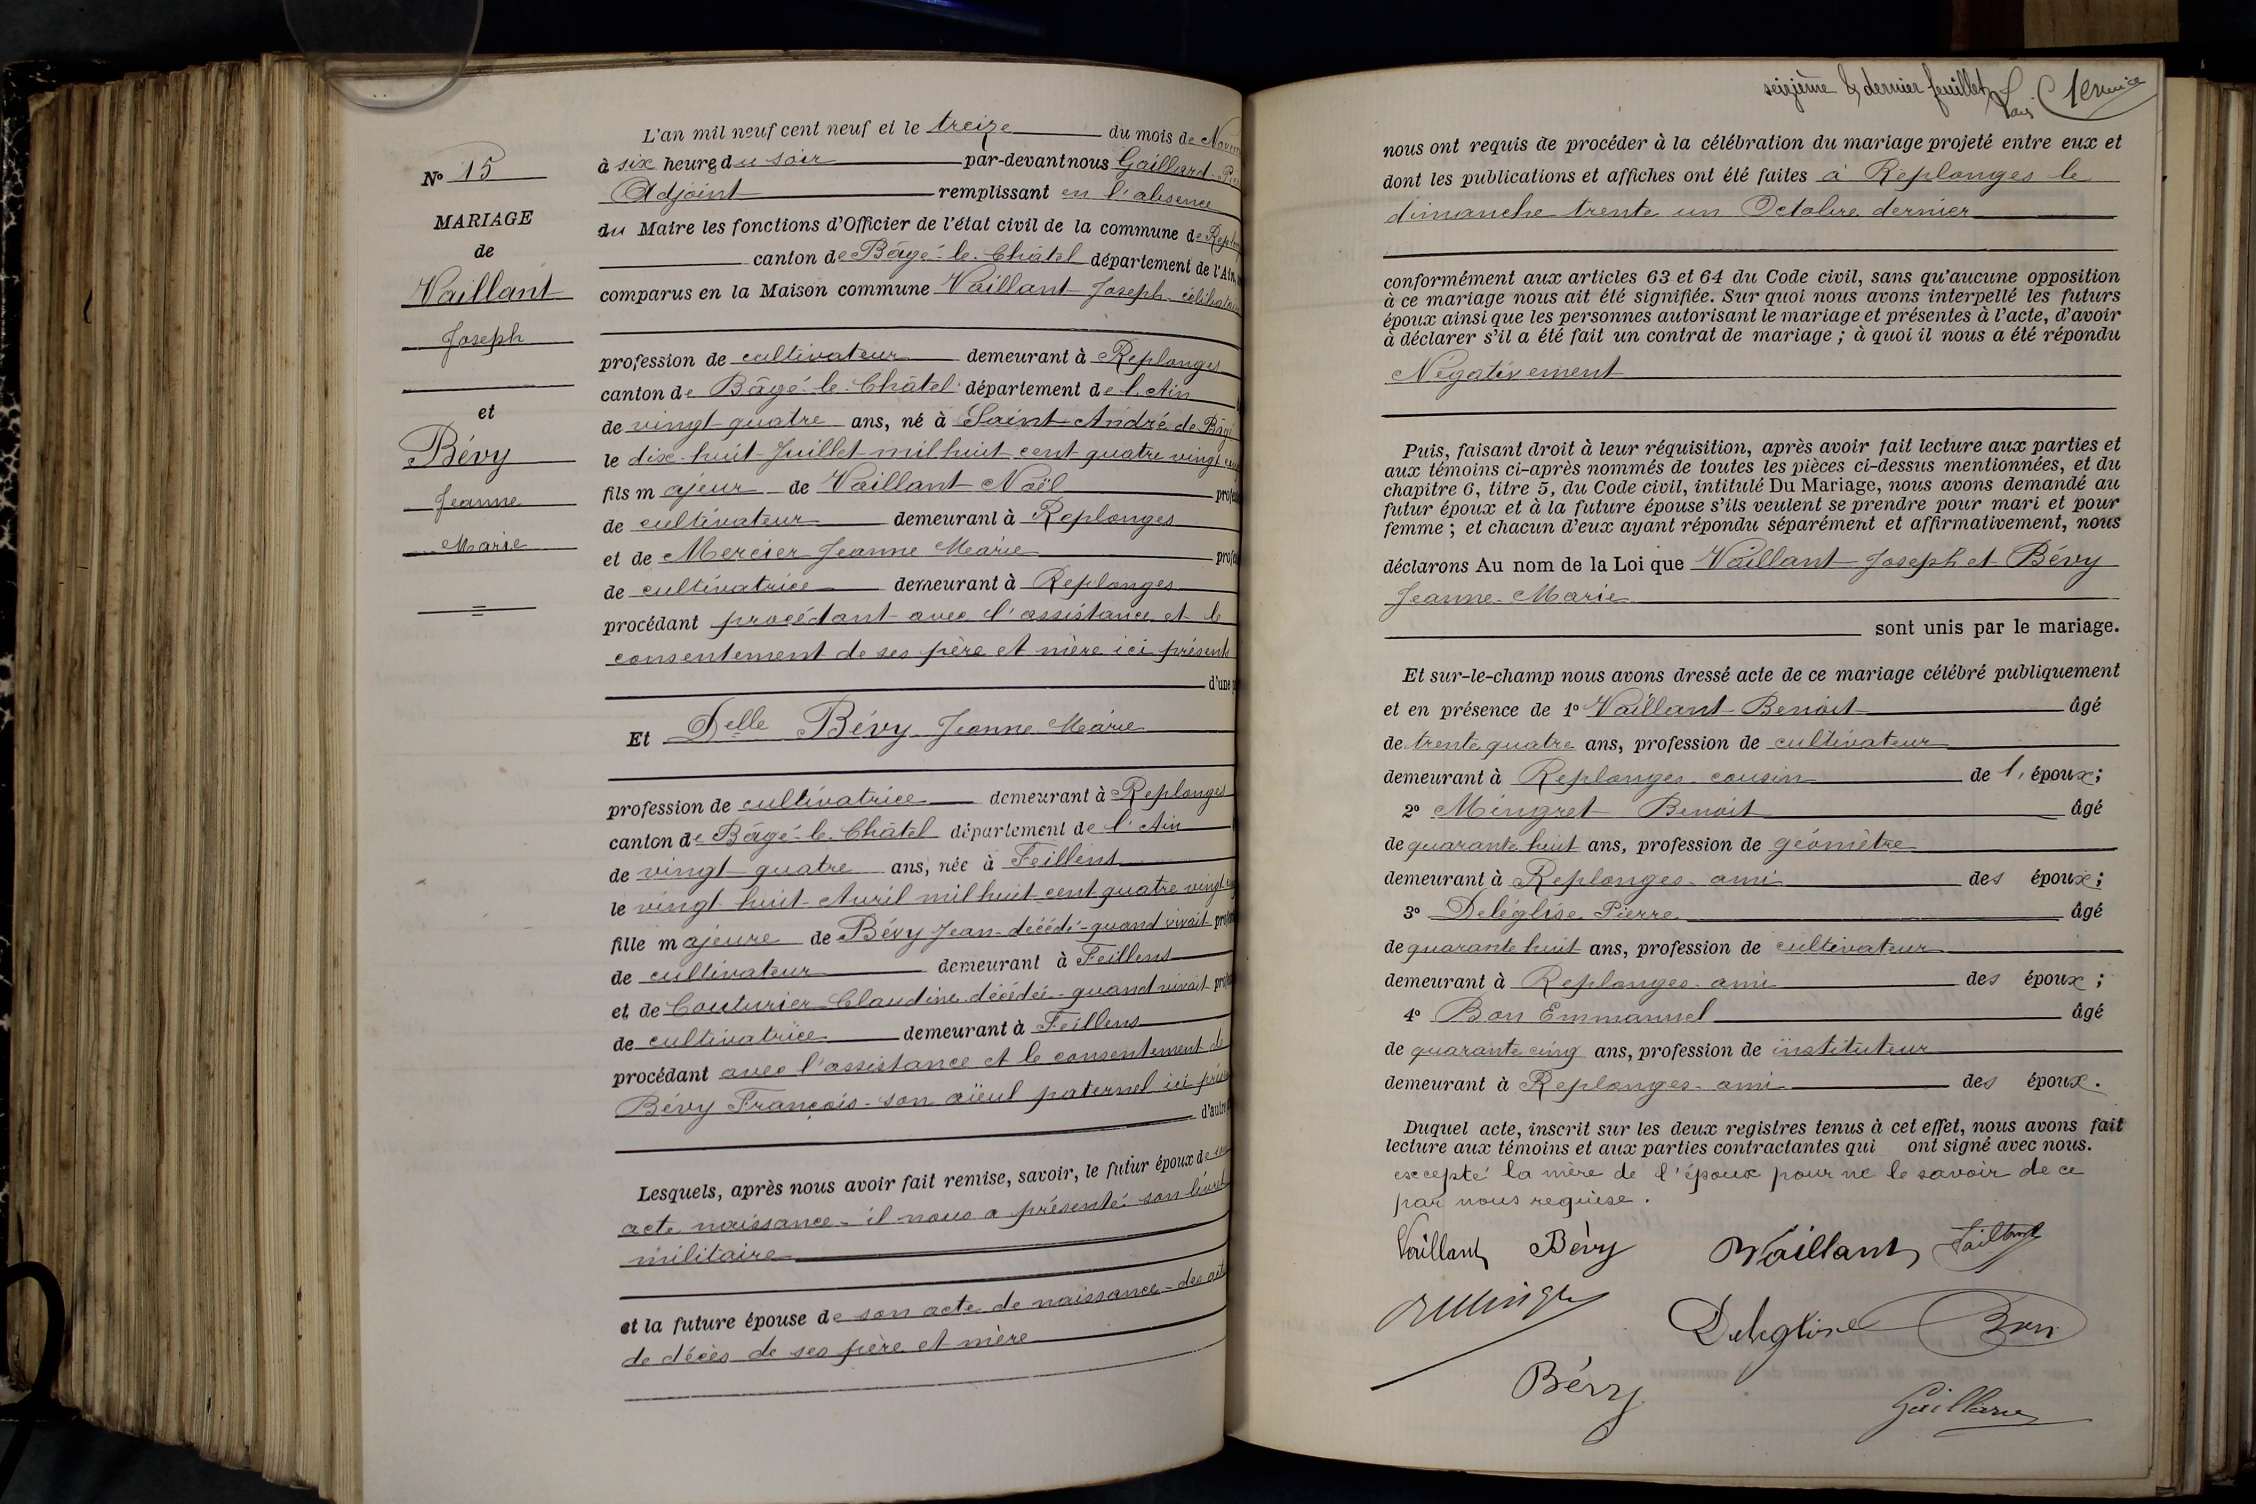 N° 15
MARIAGE
de
Vaillant
Joseph
et
Bévy
Jeanne
Marie
L'an mil neuf cent neuf et le treize du mois de
à six heures du soir par-devant nous Gaillard
Adjoint remplissant en l'absence
du Maire les fonctions d'Officier de l'état civil de la commune de
canton de Bâgé-le-Châtel département de l'Ain,
comparus en la Maison commune Vaillant Joseph
profession de cultivateur demeurant à Replonges
canton de Bâgé-le-Châtel département de l'Ain
de vingt quatre ans, né à Saint-André de Bâgé
le dix-huit Juillet mil huit cent quatre vingt
fils majeur de Vaillant Noël
de cultivateur demeurant à Replonges
et de Mercier Jeanne Marie
de cultivatrice demeurant à Replonges
procédant procédant avec l'assistance et le
consentement de ses père et mère ici présents
d'une
Et Delle Bévy Jeanne Marie
profession de cultivatrice demeurant à Replonges
canton de Bâgé-le-Châtel département de l'Ain
de vingt quatre ans, née à Feillens
le vingt huit Avril mil huit cent quatre vingt
fille majeure de Bévy Jean-décédé-quand vivait
de cultivateur demeurant à Feillens
et de Couturier Claudine décédée-quand vivait
de cultivatrice demeurant à Feillens
procédant avec l'assistance et le consentement de
Bévy François-son aïeul paternel ici
Lesquels, après nous avoir fait remise, savoir, le futur époux de son
acte naissance-il nous a présenté son livret
militaire
et la future épouse de son acte de naissance-des
de décès de ses père et mère
seizième & dernier feuillet
nous ont requis de procéder à la célébration du mariage projeté entre eux et
dont les publications et affiches ont été faites à Replonges le
dimanche trente un Octobre dernier
conformément aux articles 63 et 64 du Code civil, sans qu'aucune opposition
à ce mariage nous ait été signifiée. Sur quoi nous avons interpellé les futurs
époux ainsi que les personnes autorisant le mariage et présentes à l'acte, d'avoir
à déclarer s'il a été fait un contrat de mariage ; à quoi il nous a été répondu
Négativement
Puis, faisant droit à leur réquisition, après avoir fait lecture aux parties et
aux témoins ci-après nommés de toutes les pièces ci-dessus mentionnées, et du
chapitre 6, titre 5, du Code civil, intitulé Du Mariage, nous avons demandé au
futur époux et à la future épouse s'ils veulent se prendre pour mari et pour
femme ; et chacun d'eux ayant répondu séparément et affirmativement, nous
déclarons Au nom de la Loi que Vaillant Joseph et Bévy
Jeanne-Marie
sont unis par le mariage.
Et sur-le-champ nous avons dressé acte de ce mariage célébré publiquement
et en présence de 1° Vaillant Benoit âgé
de trente quatre ans, profession de cultivateur
demeurant à Replonges-cousin de l'époux;
2° Mingret Benoit âgé
de quarante huit ans, profession de géomètre
demeurant à Replonges-ami des époux;
3° Deléglise Pierre âgé
de quarante huit ans, profession de cultivateur
demeurant à Replonges-ami des époux ;
4° Bon Emmanuel âgé
de quarante cinq ans, profession de instituteur
demeurant à Replonges-ami des époux.
Duquel acte, inscrit sur les deux registres tenus à cet effet, nous avons fait
lecture aux témoins et aux parties contractantes qui ont signé avec nous.
excepté la mère de l'époux pour ne le savoir de ce
par nous requise.
Vaillant Bévy Vaillant Vaillant
Deleglise Bon
Bévy
Gaillard